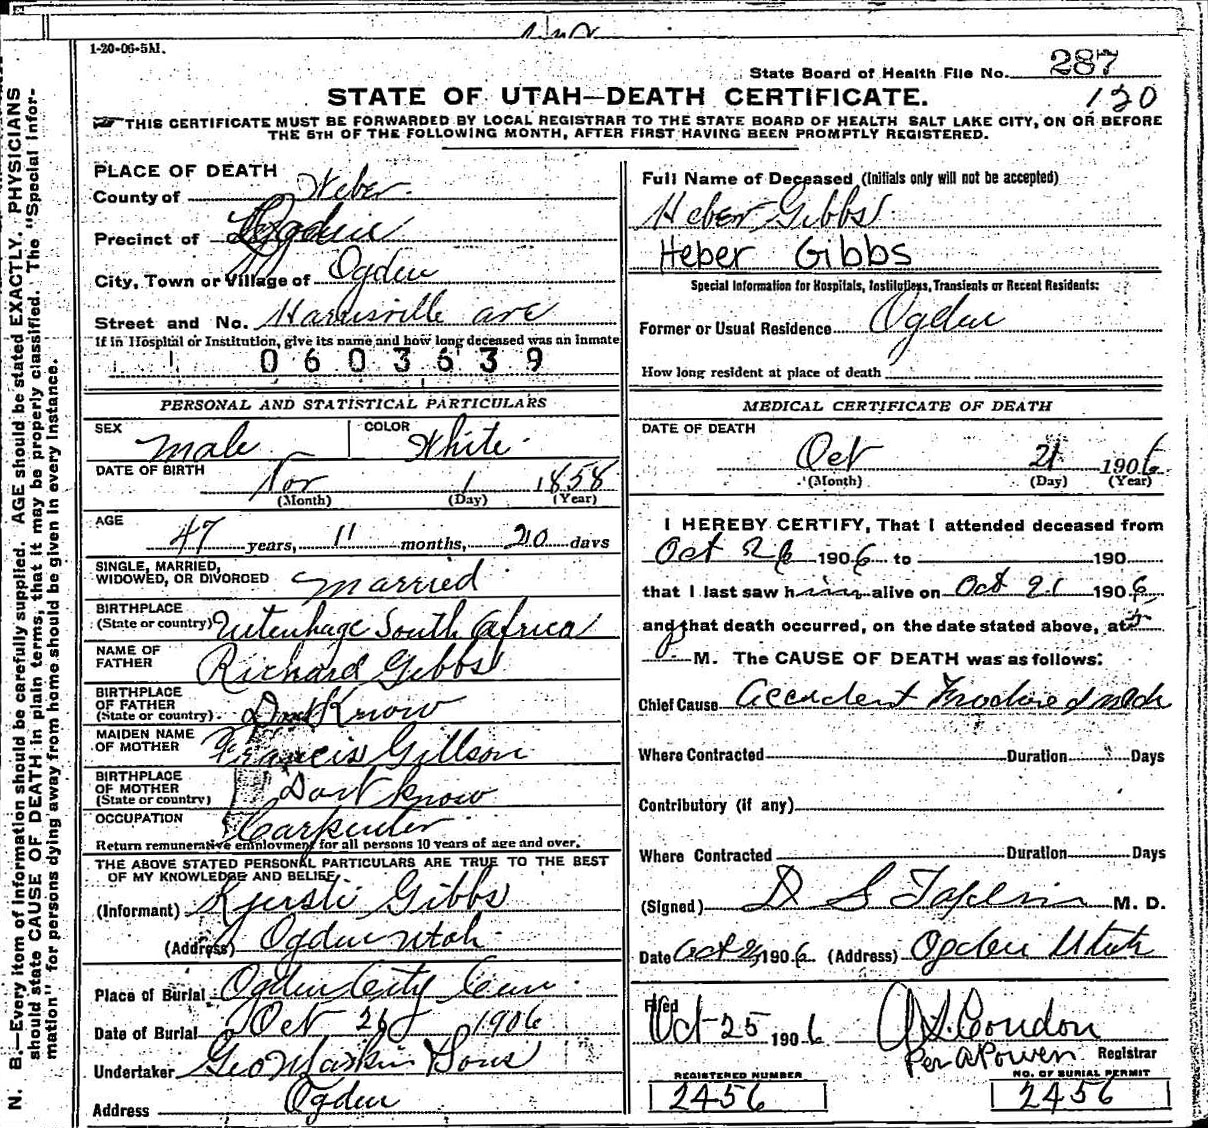 1-20-06-5M.
State Board of Health File No. 287
120
STATE OF UTAH—DEATH CERTIFICATE.
THIS CERTIFICATE MUST BE FORWARDED BY LOCAL REGISTRAR TO THE STATE BOARD OF HEALTH SALT LAKE CITY, ON OR BEFORE
THE 5TH OF THE FOLLOWING MONTH, AFTER FIRST HAVING BEEN PROMPTLY REGISTERED.
N. B.—Every item of information should be carefully supplied. AGE should be stated EXACTLY. PHYSICIANS
should state CAUSE OF DEATH in plain terms, that it may be properly classified. The "Special Infor-
mation" for persons dying away from home should be given in every instance.
PLACE OF DEATH
County of Weber
Precinct of Ogden
City, Town or Village of Ogden
Street and No. Harrisville ave
If in Hospital or Institution, give its name and how long deceased was an inmate
0603639
PERSONAL AND STATISTICAL PARTICULARS
SEX Male COLOR White
DATE OF BIRTH
Nov 1 1858
(Month) (Day) (Year)
AGE
47 years, 11 months, 20 days
SINGLE, MARRIED,
WIDOWED, OR DIVORCED Married
BIRTHPLACE
(State or country) Uitenhage South Africa
NAME OF
FATHER Richard Gibbs
BIRTHPLACE
OF FATHER
(State or country) Dont Know
MAIDEN NAME
OF MOTHER Francis Gillson
BIRTHPLACE
OF MOTHER
(State or country) Dont know
OCCUPATION
Carpenter
Return remunerative employment for all persons 10 years of age and over.
THE ABOVE STATED PERSONAL PARTICULARS ARE TRUE TO THE BEST
OF MY KNOWLEDGE AND BELIEF
(Informant) Kjersti Gibbs
(Address) Ogden Utah
Place of Burial Ogden City Cem
Date of Burial Oct 26 1906
Undertaker Geo Larkin & Sons
Address Ogden
Full Name of Deceased (Initials only will not be accepted)
Heber Gibbs
Heber Gibbs
Special Information for Hospitals, Institutions, Transients or Recent Residents:
Former or Usual Residence Ogden
How long resident at place of death
MEDICAL CERTIFICATE OF DEATH
DATE OF DEATH
Oct 21 1906
(Month) (Day) (Year)
I HEREBY CERTIFY, That I attended deceased from
Oct 1906 to 190
that I last saw him alive on Oct 21 1906
and that death occurred, on the date stated above, at 5
P M. The CAUSE OF DEATH was as follows:
Chief Cause Accident Fractured neck
Where Contracted Duration Days
Contributory (if any)
Where Contracted Duration Days
(Signed) D S M. D.
Date Oct 1906 (Address) Ogden Utah
Filed
Oct 25 1906 Condon
Per A Power Registrar
REGISTERED NUMBER NO. OF BURIAL PERMIT
2456 2456